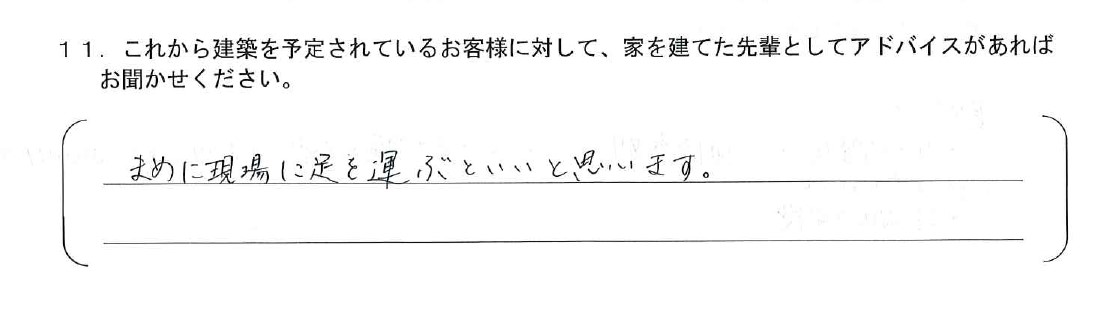 １１．これから建築を予定されているお客様に対して、家を建てた先輩としてアドバイスがあれば
お聞かせください。
まめに現場に足を運ぶといいと思います。